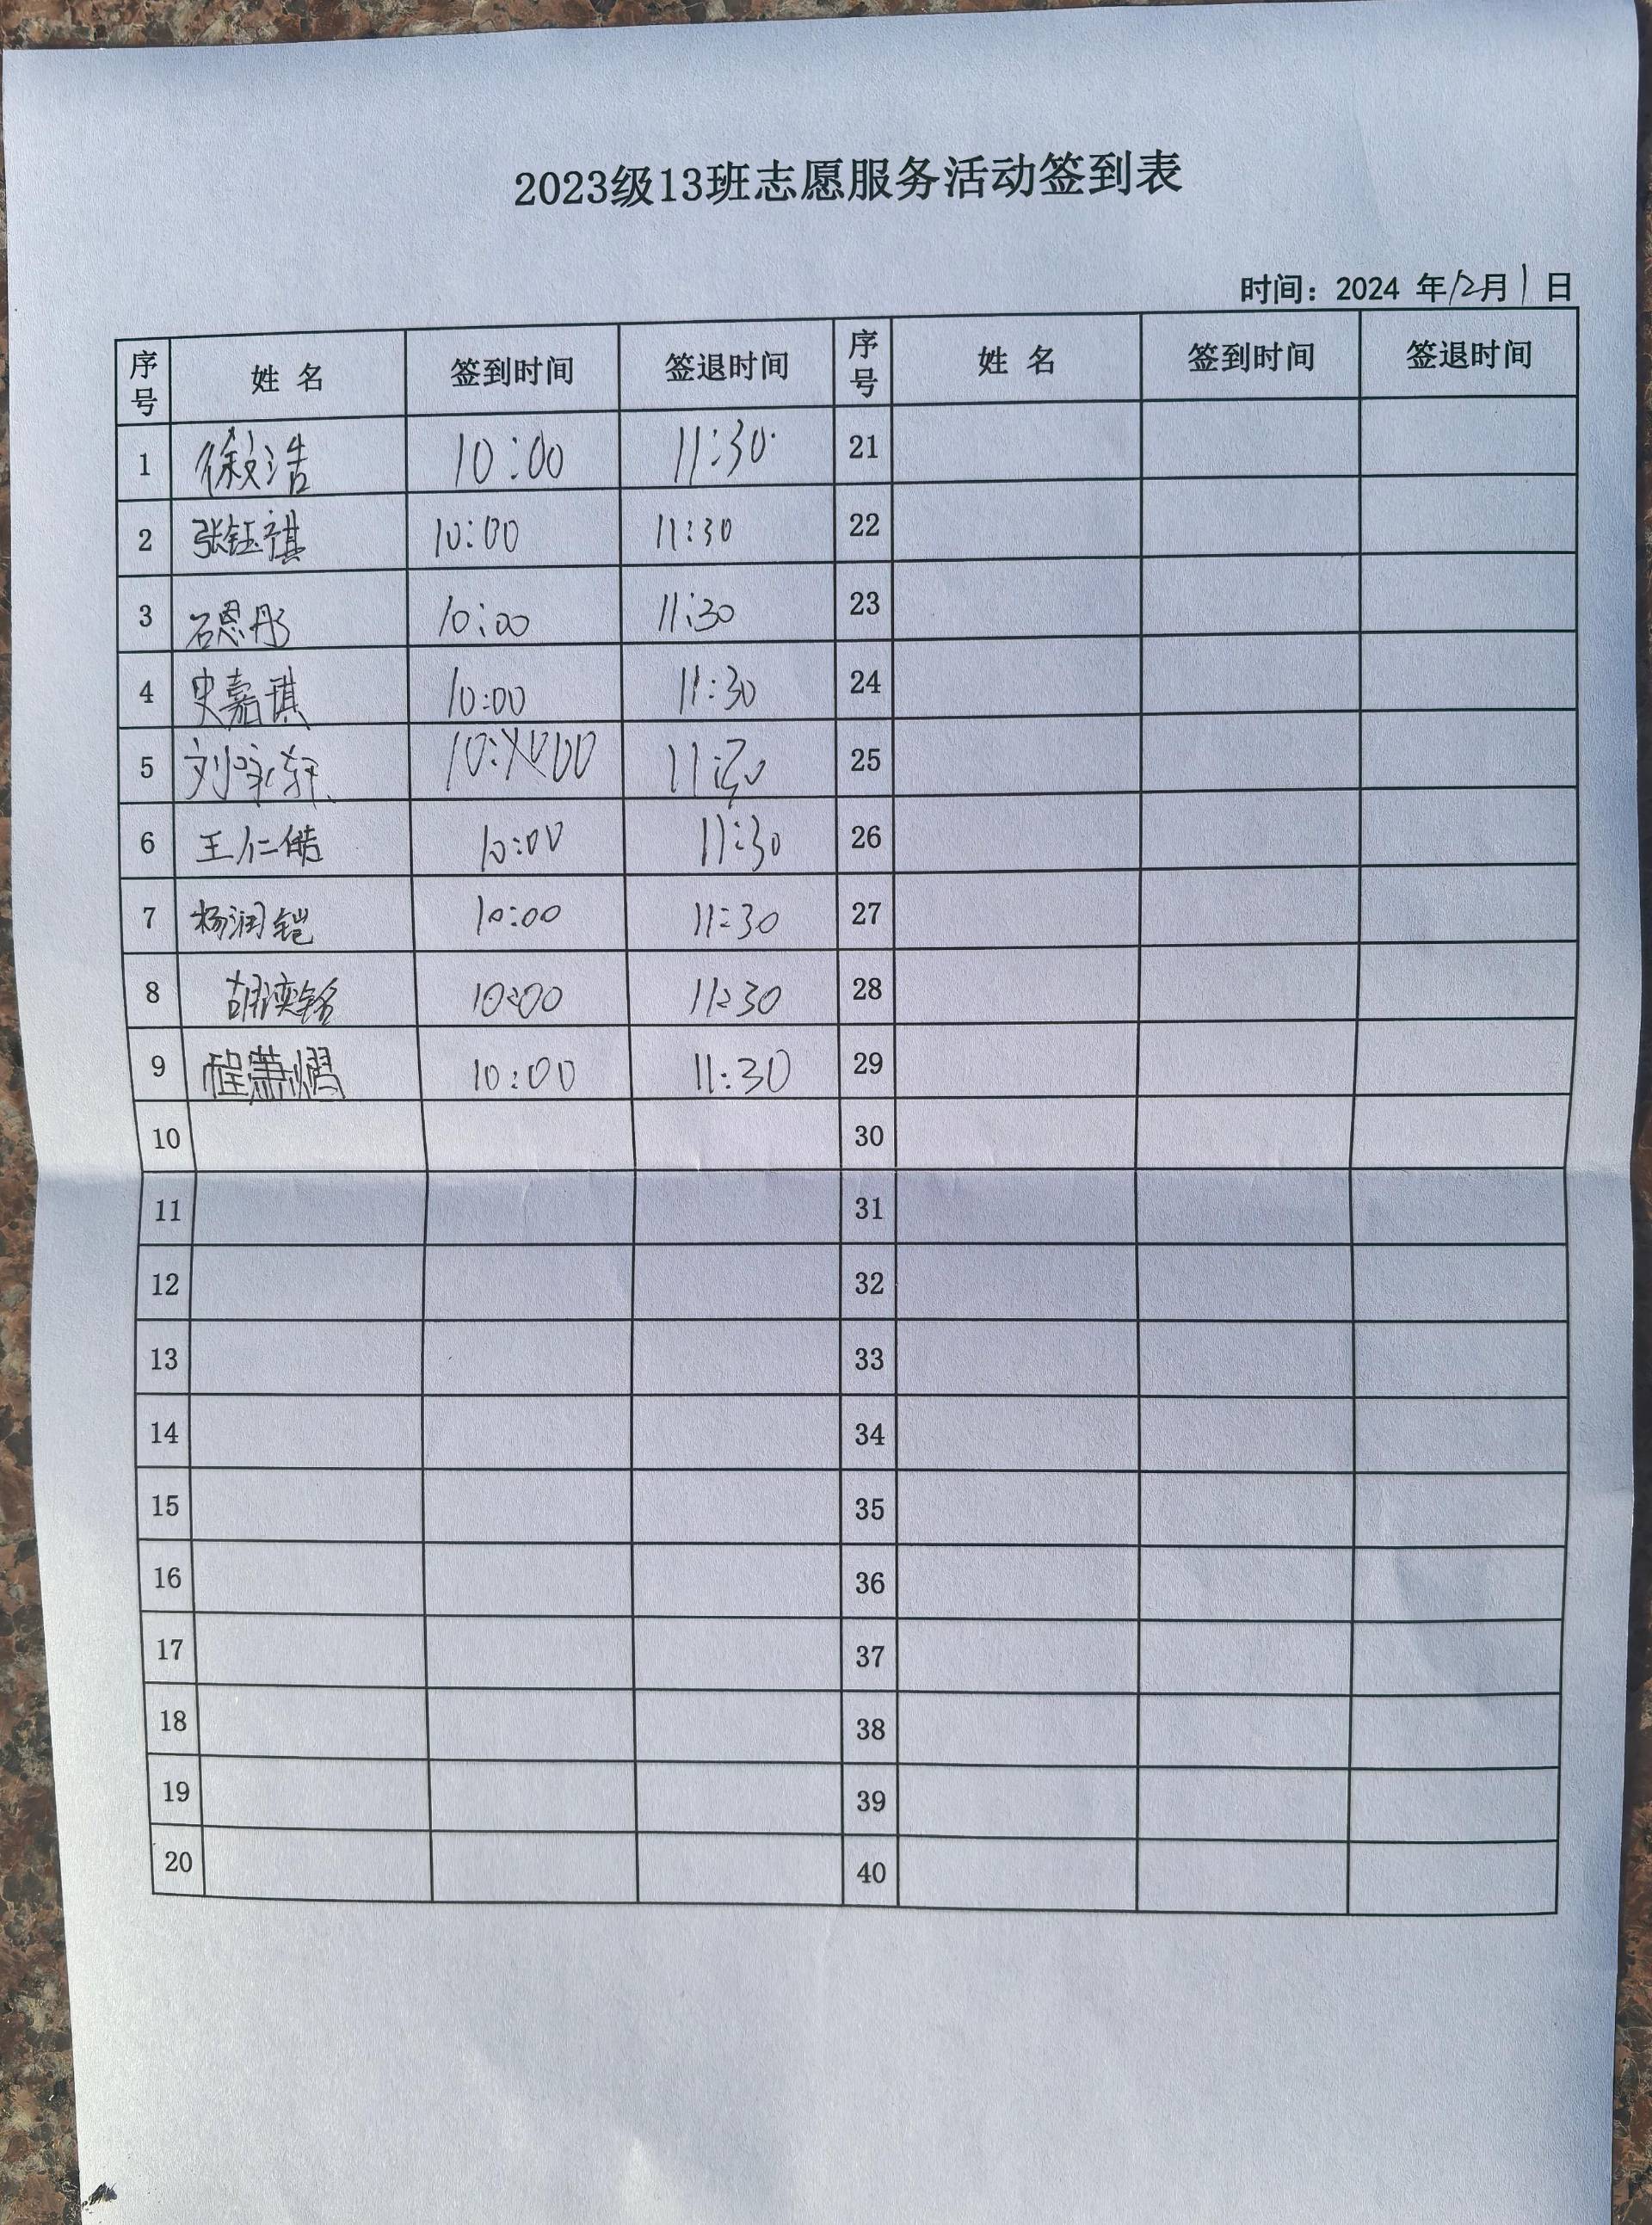 2023级13班志愿服务活动签到表
时间：2024 年12月1日
序号 姓 名 签到时间 签退时间 序号 姓 名 签到时间 签退时间
1 徐浩 10:00 11:30 21
2 张钰祺 10:00 11:30 22
3 石恩彤 10:00 11:30 23
4 史嘉琪 10:00 11:30 24
5 刘 10:00 11:30 25
6 王仁皓 10:00 11:30 26
7 杨润铠 10:00 11:30 27
8 胡奕铭 10:00 11:30 28
9 程萧熠 10:00 11:30 29
10 30
11 31
12 32
13 33
14 34
15 35
16 36
17 37
18 38
19 39
20 40